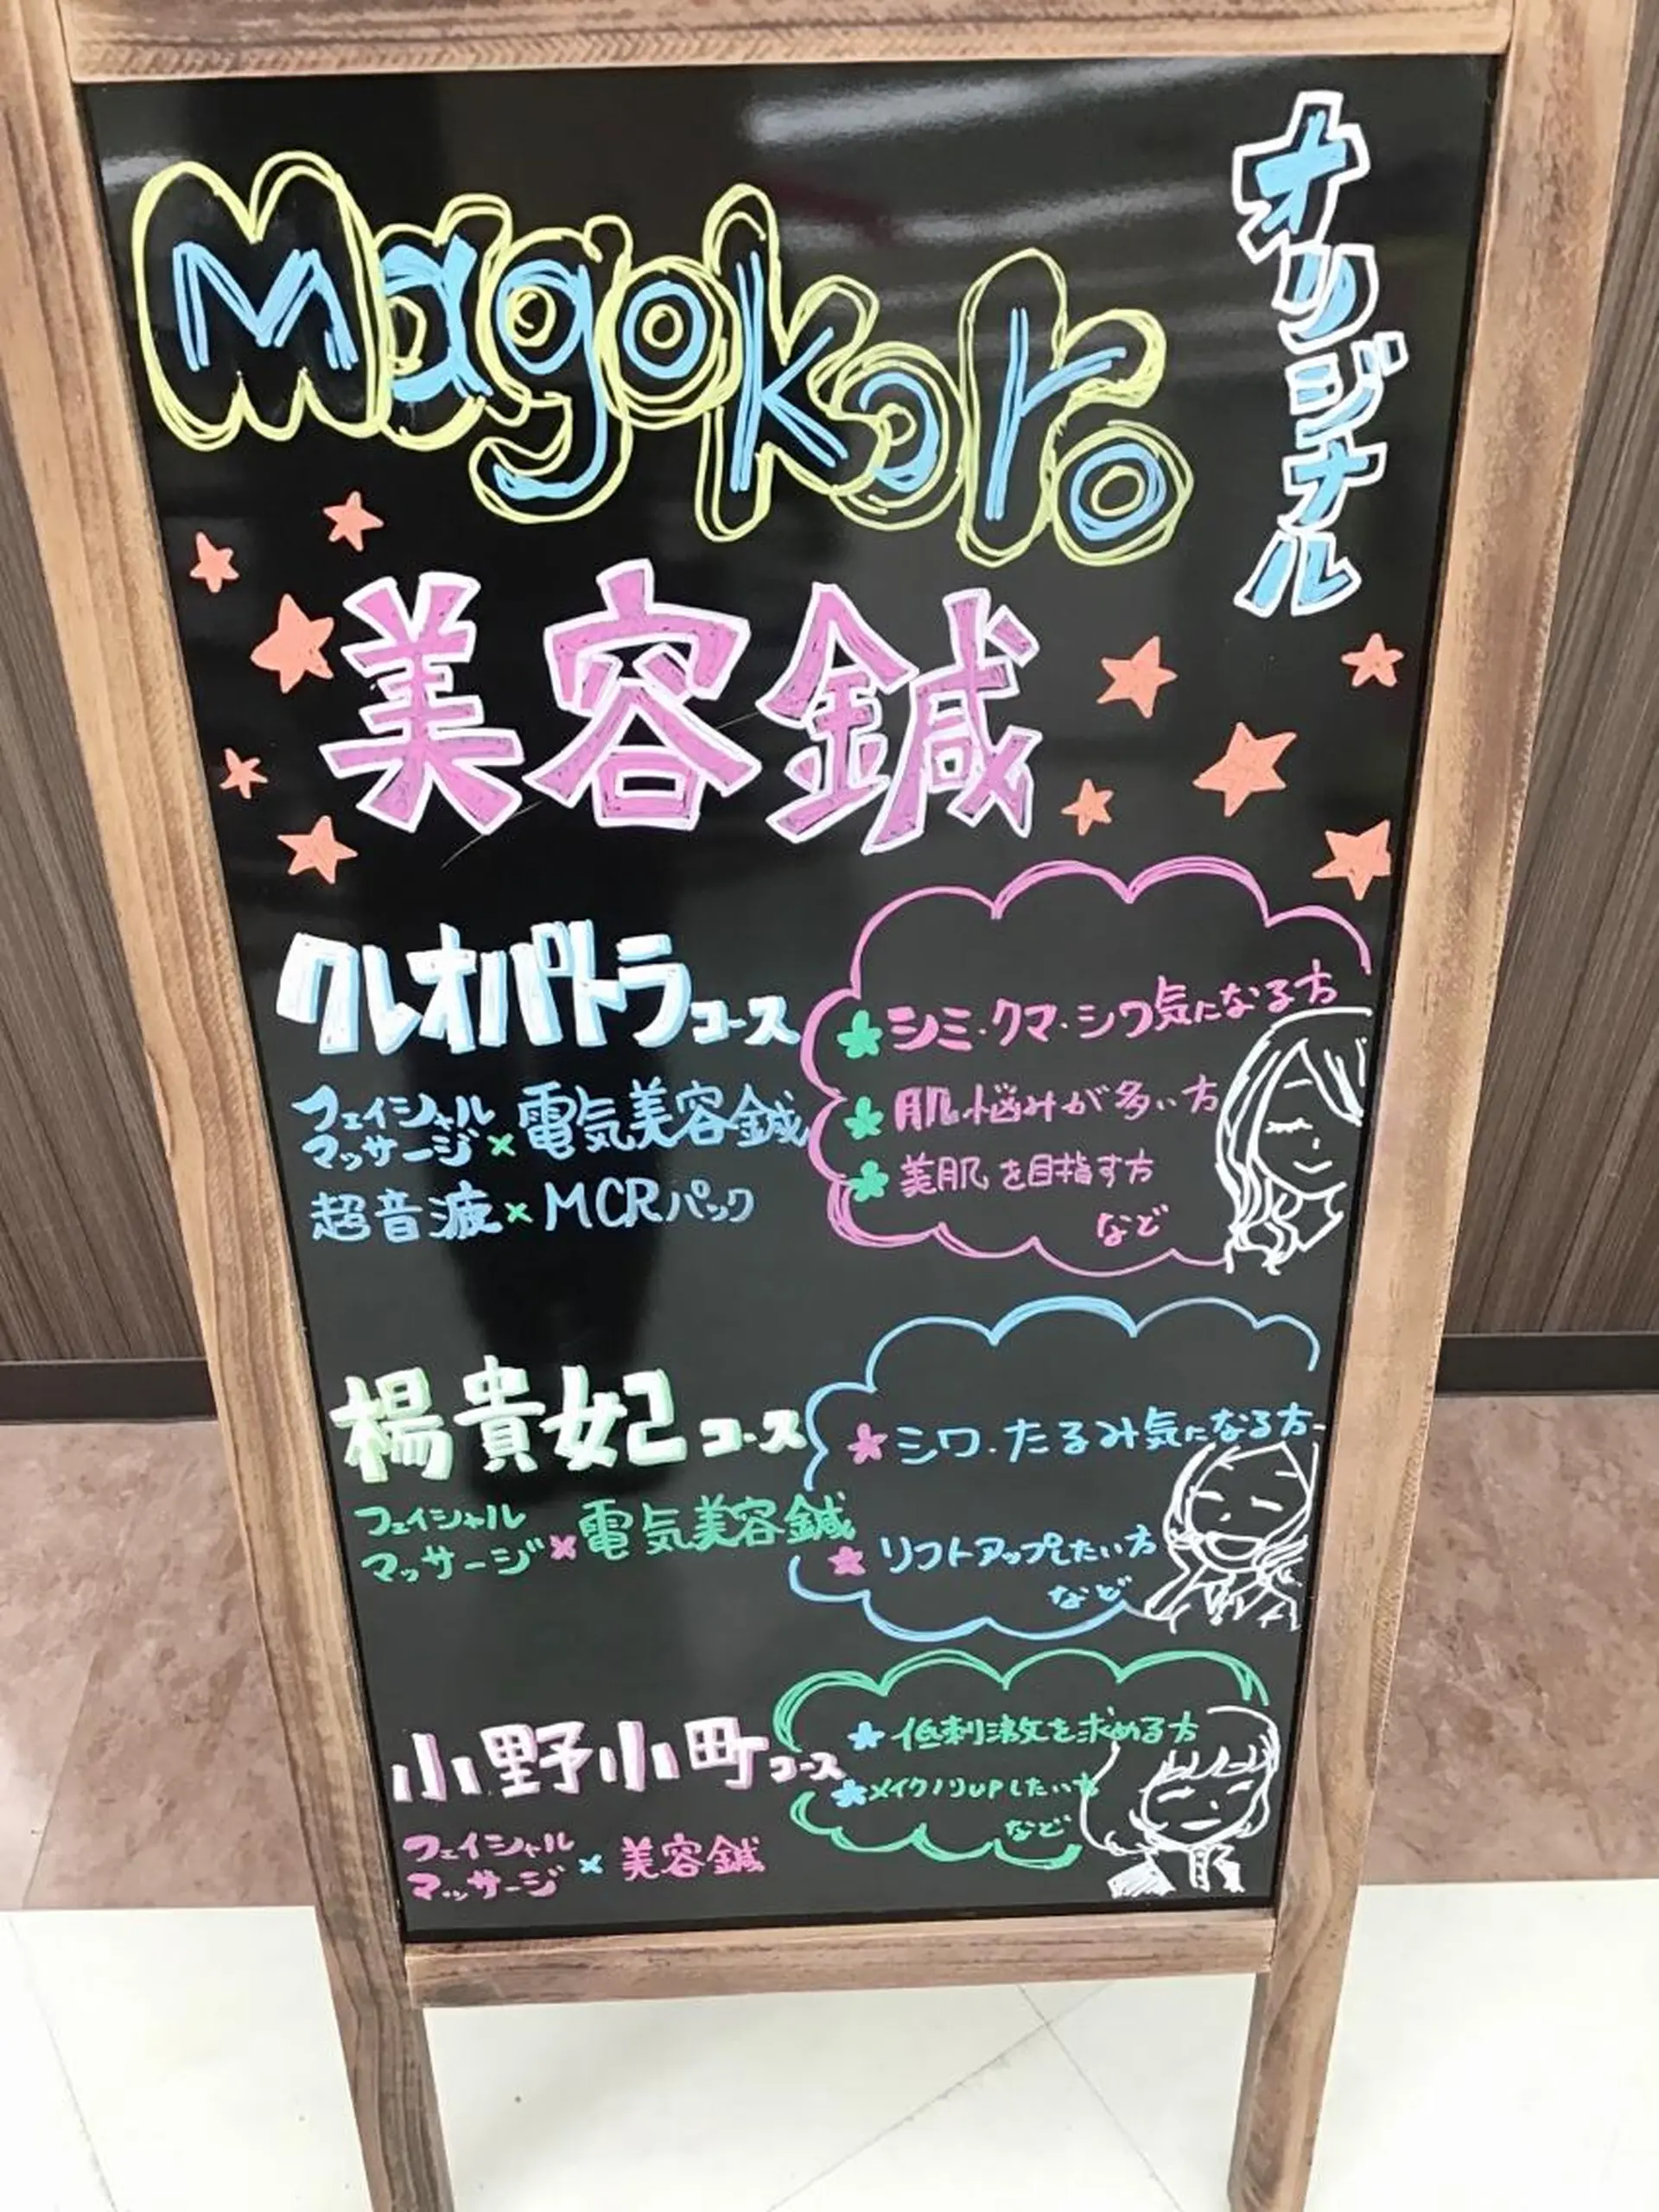 Magokoro
オリジナル
美容鍼
クレオパトラコース
フェイシャル
マッサージ×電気美容鍼
超音波×MCRパック
シミ・クマ・シワ気になる方
肌悩みが多い方
美肌を目指す方
など
楊貴妃コース
フェイシャル
マッサージ×電気美容鍼
シワ・たるみ気になる方
リフトアップしたい方
など
小野小町コース
フェイシャル
マッサージ×美容鍼
低刺激を求める方
メイクノリUPしたい方
など